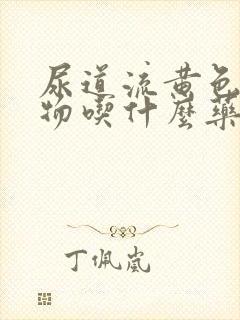 尿道流黄色
物喫什麼藥
丁佩嵐